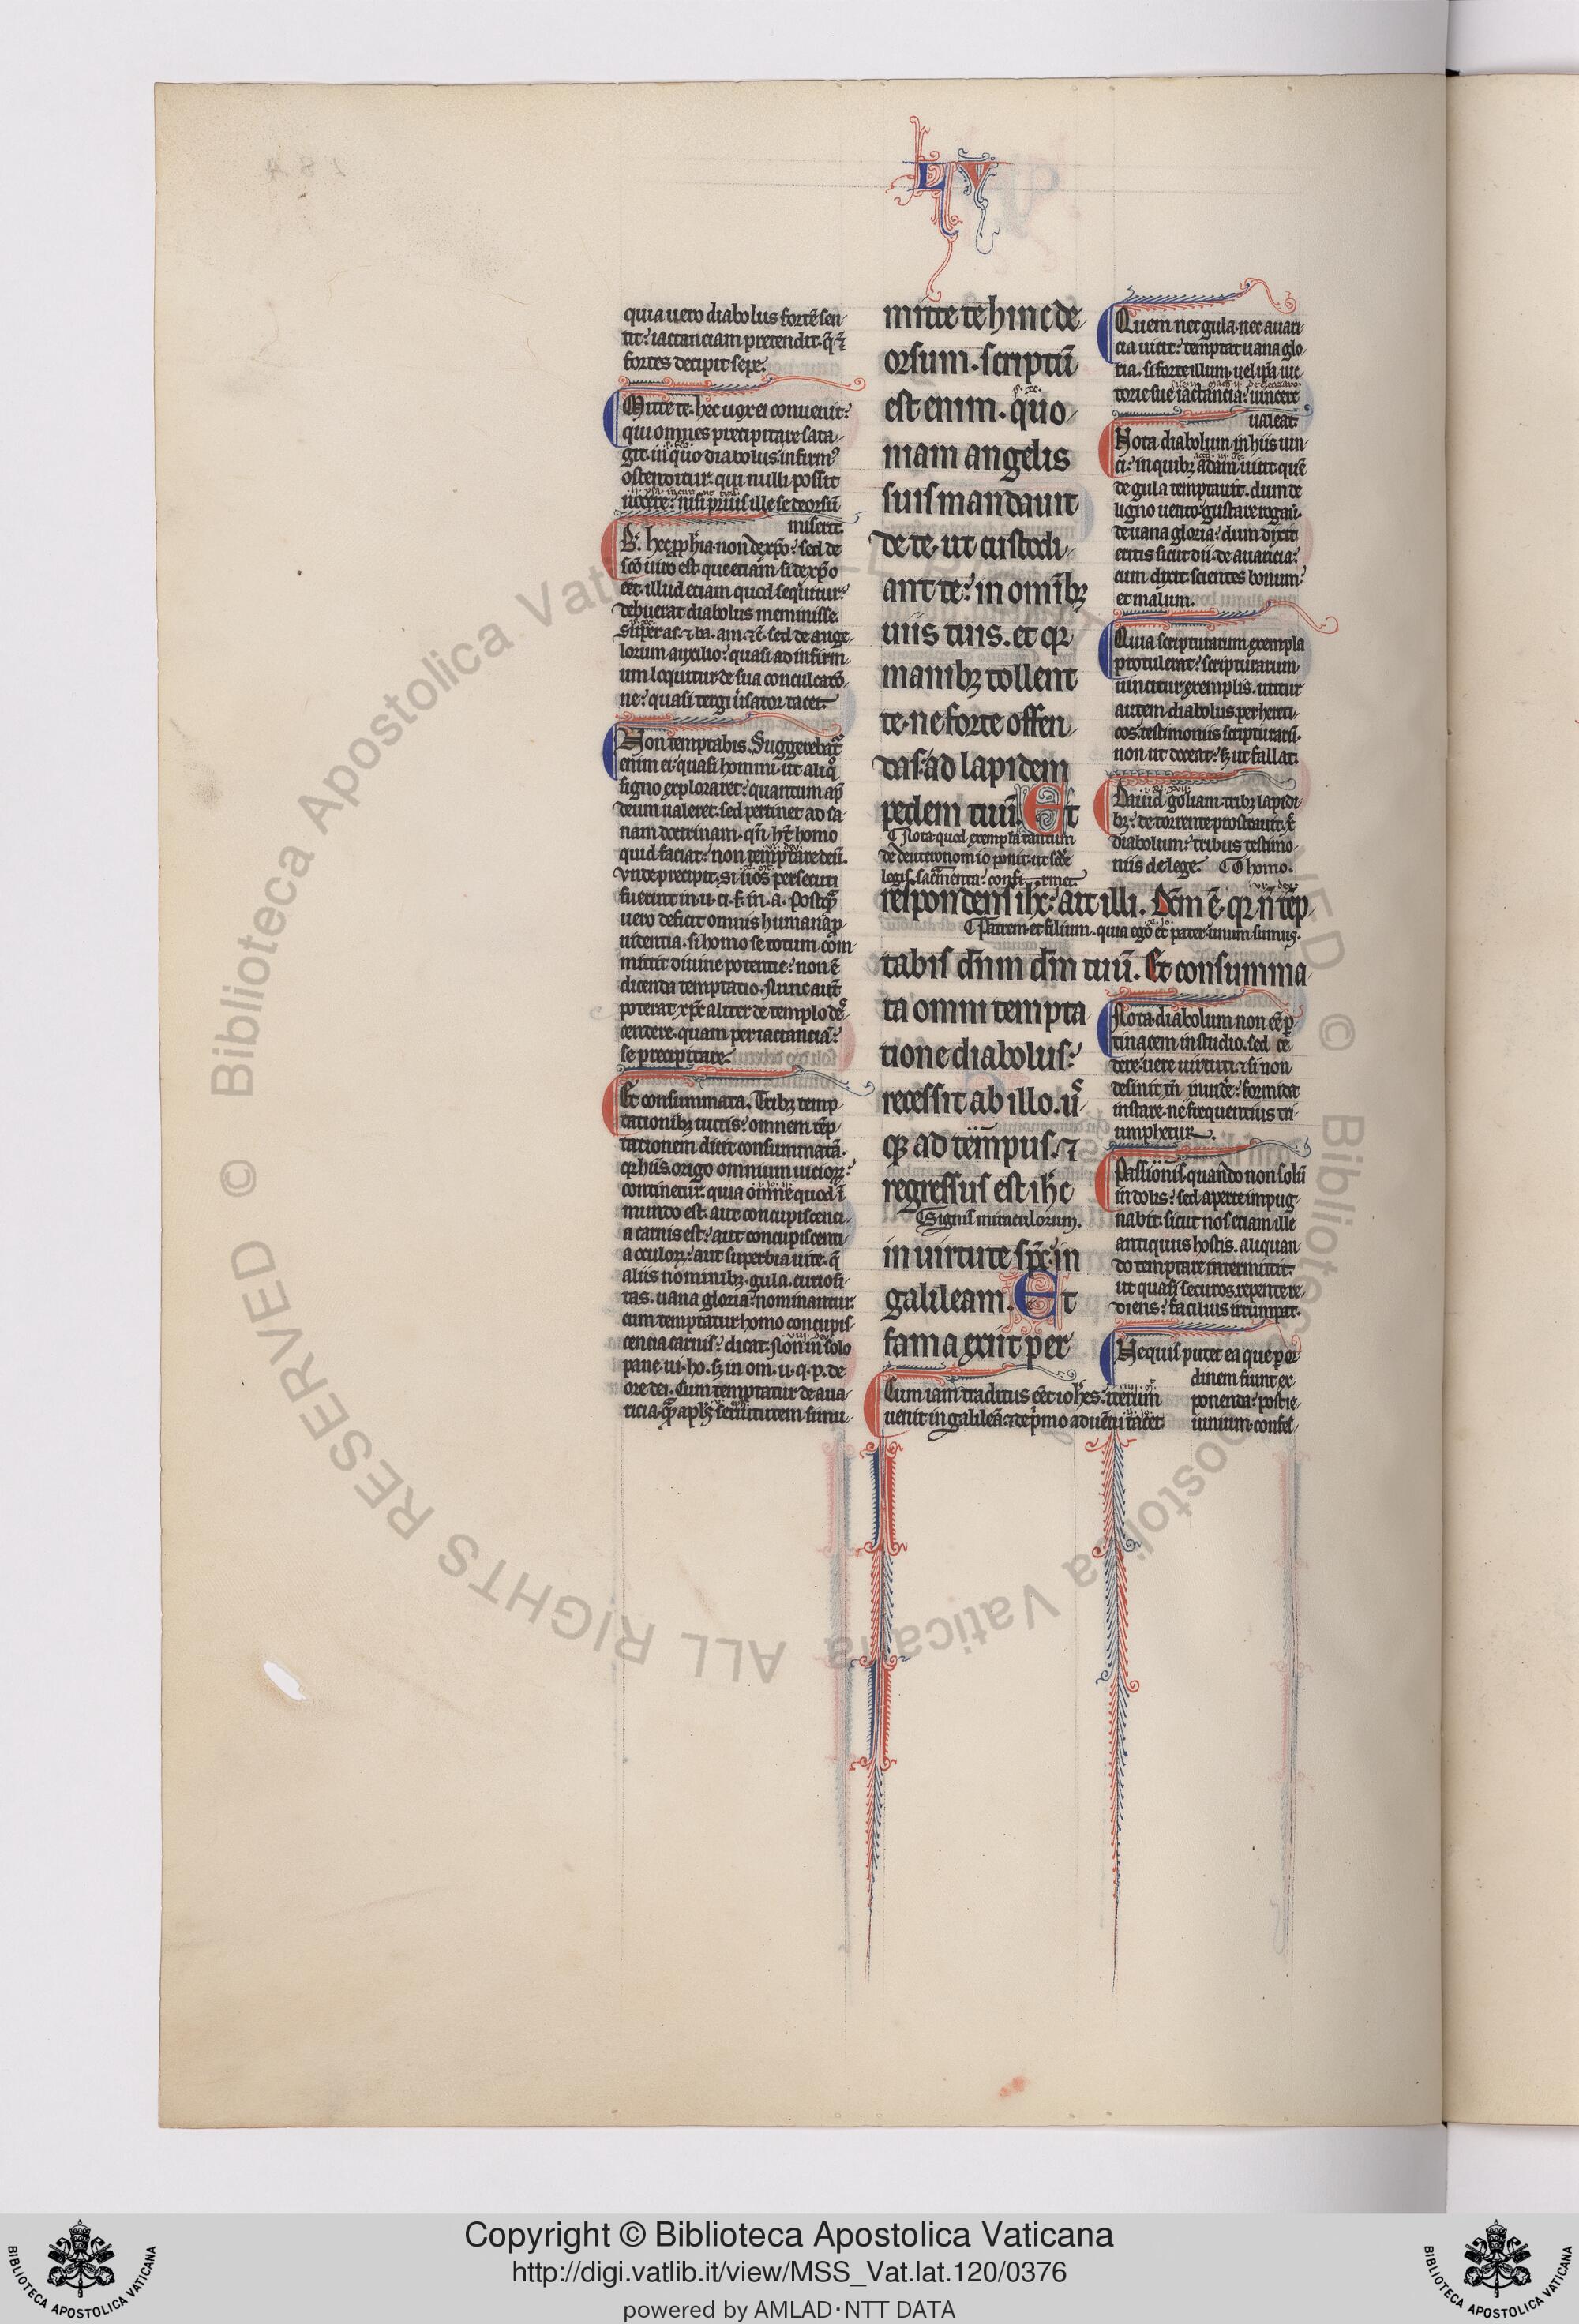 LV
quia uero diabolus fortē sen-
tit: iactanciam pretendit. q̄ ⁊
fortes decipit sepe.
Mitte te. hec uox ei conuenit:
qui omnes precipitare sata-
git. in quo diabolus infirm᷒
ostenditur. qui nulli possit
nocere: nisi prius ille se deorsū
miserit.
B. hec ꝓphia non de xp̄o: sed de
scō uiro est. que etiam si de xp̄o
eēt. illud etiam quod sequitur:
debuerat diabolus meminisse.
Super as. ⁊ ba. am. ⁊c̄. sed de ange-
lorum auxilio: quasi ad infirm-
um loquitur. de sua conculcatō-
ne: quasi tergiuersator tacet.
Non temptabis. Suggerebat᷑
enim ei quasi homini. ut aliq̊
signo exploraret: quantum ap̄
deum ualeret. sed pertinet ad sa-
nam doctrinam. qn̄ hēt homo
quid faciat: non temptare deū.
Vnde precipit. Si uos persecuti
fuerint in. u. ci. f. in. a. Postq̄
uero deficit omnis humana ꝓ-
uidentia. si homo se totum com-
mittit diuine potentie: non ē
dicenda temptatio. Nunc aut̄
poterat xp̄c aliter de templo des-
cendere. quam per iactanciā:
se precipitare.
Et consummata. Tribꝫ temp-
tationibꝫ dictis: omnem tēp-
tationem dicit consummatā.
qꝛ hiis origo omnium uicioꝝ:
continetur. quia omne quod ī
mundo est. aut concupiscenci-
a carnis est: aut concupiscenti-
a oculoꝝ: aut superbia uite. q̄
aliis nominibꝫ. gula. curiosi-
tas. uana gloria: nominantur.
cum temptatur homo concupis-
cencia carnis: dicat. Non in solo
pane. ui. ho. sꝫ in om. u. q. p. de
ore dei. Cum temptatur de aua-
ricia. quā apłs seruitutem simu-
mitte te hinc de-
orsum. scriptū
est enim. quo-
niam angelis
suis mandauit
de te. ut custodi-
ant te: in omībꝫ
uiis tuis. et qꝛ
manibꝫ tollent
te. ne forte offen-
das ad lapidem
pedem tuū. Et
Nota quod exempla tantum
de deuteronomio ponit. ut scd̄e
legis sacm̄enta confirmet.
respondens ihc: ait illi. Dcm̄ ē. qꝛ n̄ tēp-
Patrem et filium. quia ego et pater unum sumus.
tabis dn̄m dm̄ tuū. Et consumma-
ta omni tempta-
tione diabolus:
recessit ab illo. us-
qꝫ ad tempus. ⁊
regressus est ihc
Signis miraculorum.
in uirtute spc̄. in
galileam. Et
fama exiit per
Cum iam traditus eēt ioh̄es: iterum
uenit in galileā. ⁊ de p̊mo aduētu tacet.
Quem nec gula. nec auari-
cia uicit: temptat uana glo-
ria. si forte illum. uel ip̄a uic-
torie sue iactancia: uincere
ualeat.
Nota diabolum in hiis uin-
ci: in quibꝫ adam uicit. quē
de gula temptauit. dum de
ligno uetito gustare rogauit.
de uana gloria: dum dixit
eritis sicut dii. de auaricia:
cum dixit. scientes bonum:
et malum.
Quia scripturarum exempla
protulerat: scripturarum
uincitur exemplis. utitur
autem diabolus per hereti-
cos testimoniis scripturarū.
non ut doceat: sꝫ ut fallat.
Dauid goliam. tribꝫ lapidi-
bꝫ: de torrente prostrauit. x̄
diabolum: tribus testimo-
niis de lege. O homo.
Nota diabolum non eē ꝑ-
tinacem in studio. sed ce-
dere uere uirtuti. ⁊ si non
desinit tn̄ inuide: formidat
instare. ne frequentius tri-
umphetur.
Passionis. quando non solū
in dolis: sed aperte impug-
nabit. sicut nos etiam ille
antiquus hostis. aliquan-
do temptare intermittit.
ut quasi securos. repente re-
diens: facilius irrumpat.
Ne quis putet ea que ꝑ or-
dinem fiunt ex-
ponenda: post ie-
iunium. confes-
Copyright © Biblioteca Apostolica Vaticana
http://digi.vatlib.it/view/MSS_Vat.lat.120/0376
powered by AMLAD·NTT DATA
BIBLIOTECA APOSTOLICA VATICANA
BIBLIOTECA APOSTOLICA VATICANA